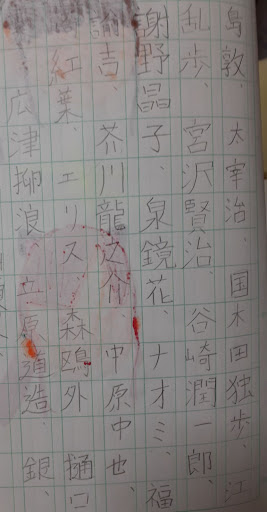 島敦、太宰治、国木田独歩、江
乱歩、宮沢賢治、谷崎潤一郎、
謝野晶子、泉鏡花、ナオミ、福
諭吉、芥川龍之介、中原中也、
紅葉、エリス、森鴎外 樋口
広津柳浪 立原道造、銀、